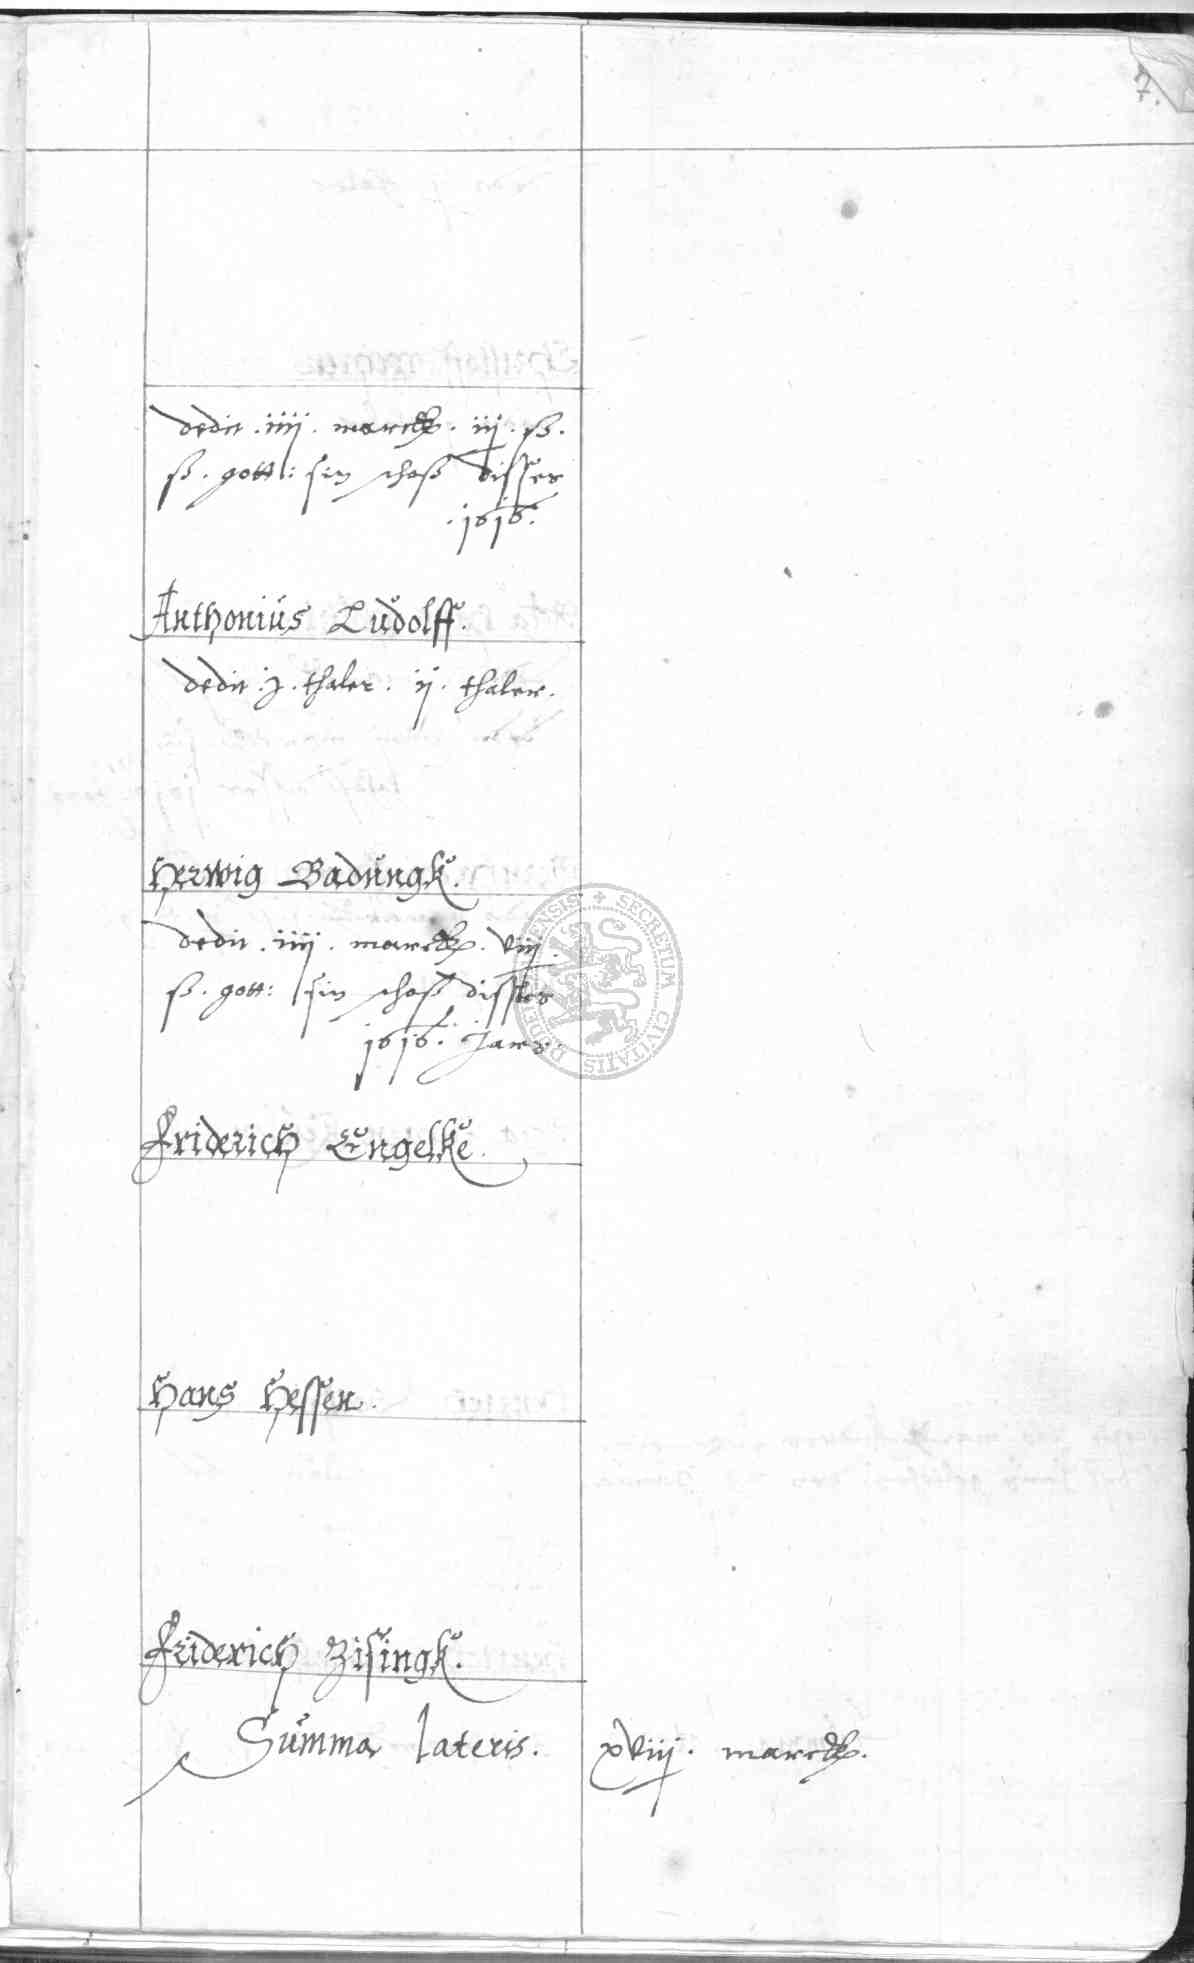 7.
dedit . iiij . marck . iij . ß .
ß . gott : sin schoß disses
. 1616 .
Anthonius Ludolff .
dedit . j . thaler . ij . thaler .
Herwig Badungk .
dedit . iiij . marck . viij .
ß . gott : sin schoß disses
1616 . Jars .
Friderich Engelke .
Hans Hessen .
Friderich Zisingk .
Summa lateris . xviij . marck .
SECRETUM CIVITATIS